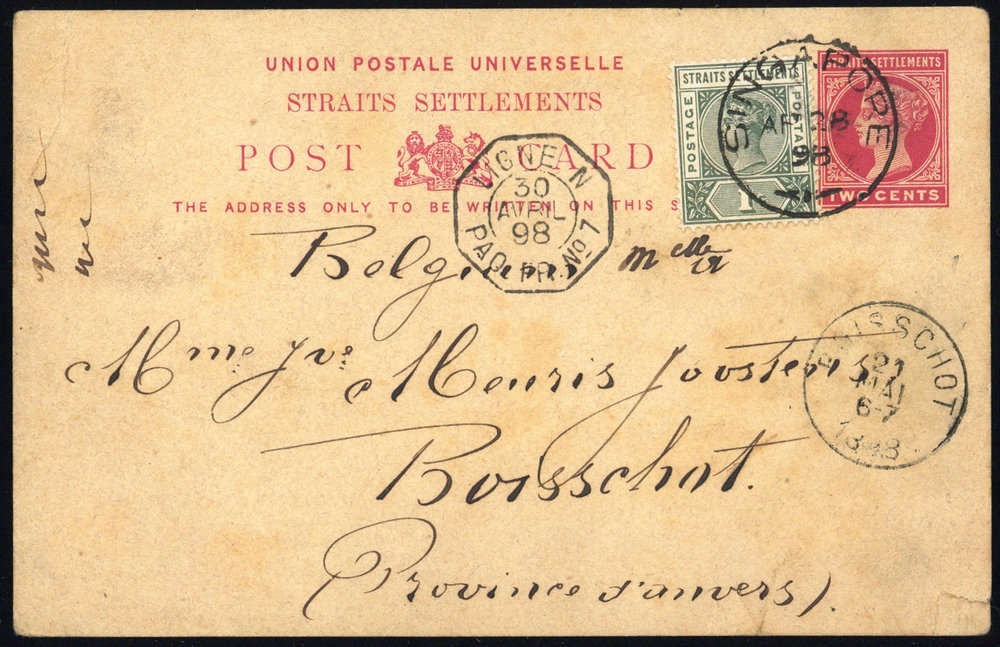 UNION POSTALE UNIVERSELLE
STRAITS SETTLEMENTS
POST CARD
THE ADDRESS ONLY TO BE WRITTEN ON THIS S
STRAITS SETTLEMENTS
POSTAGE
POSTAGE
1
SINGAPORE
AP 28
98
STRAITS SETTLEMENTS
TWO CENTS
LIGNE N
30
AVRIL
98
PAQ. FR. No 7
Belgium
Mme Jve Meuris Joostens
Boisschot.
(Province d'anvers).
BOISSCHOT
21
MAI
6-7
1898